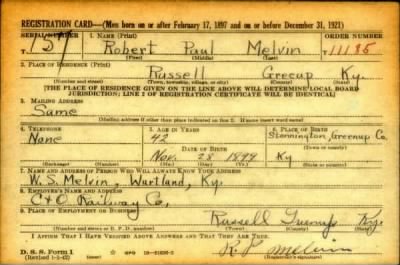 REGISTRATION CARD—(Men born on or after February 17, 1897 and on or before December 31, 1921)
SERIAL NUMBER 1. NAME (Print) ORDER NUMBER
157 Robert Paul Melvin 11185
(First) (Middle) (Last)
2. PLACE OF RESIDENCE (Print)
Russell Greenup Ky.
(Number and street) (Town, township, village, or city) (County) (State)
[THE PLACE OF RESIDENCE GIVEN ON THE LINE ABOVE WILL DETERMINE LOCAL BOARD
JURISDICTION; LINE 2 OF REGISTRATION CERTIFICATE WILL BE IDENTICAL]
3. MAILING ADDRESS
Same
[Mailing address if other than place indicated on line 2. If same insert word same]
4. TELEPHONE 5. AGE IN YEARS 6. PLACE OF BIRTH
None 42 Greenup Co.
DATE OF BIRTH (Town or county)
Nov. 28 1899 Ky
(Exchange) (Number) (Mo.) (Day) (Yr.) (State or country)
7. NAME AND ADDRESS OF PERSON WHO WILL ALWAYS KNOW YOUR ADDRESS
W. S. Melvin, Wurtland, Ky.
8. EMPLOYER'S NAME AND ADDRESS
C & O Railway Co,
9. PLACE OF EMPLOYMENT OR BUSINESS
Russell Greenup Ky.
(Number and street or R. F. D. number) (Town) (County) (State)
I AFFIRM THAT I HAVE VERIFIED ABOVE ANSWERS AND THAT THEY ARE TRUE.
D. S. S. Form 1 R. P. Melvin
(Revised 1-1-42) GPO